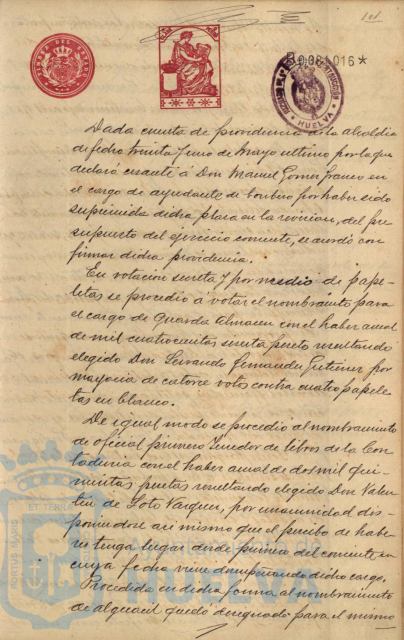 101
TIMBRE DEL ESTADO
0.081.016*
HUELVA
Dada cuenta de providencia de la alcaldia
de fecha treinta y uno de Mayo ultimo por la que
declaró cesante á Don Manuel Gomez Franco en
el cargo de ayudante de bombero por haber sido
suprimida dicha plaza en la revision, del pre
supuesto del ejercicio corriente, se acordó con
firmar dicha providencia.
En votacion secreta y por medio de pape-
letas se procedio á votar el nombramiento para
el cargo de Guarda Almacen con el haber anual
de mil cuatrocientas sesenta pesetas resultando
elegido Don Servando Fernandez Gutierrez por
mayoria de catorce votos contra cuatro papele
tas en blanco.
De igual modo se procedió al nombramiento
de oficial primero Tenedor de libros de la Con
taduria con el haber anual de dos mil qui
nientas pesetas resultando elegido Don Valen
tin de Soto Vazquez, por unanimidad dis
poniendose asi mismo que el percibo de habe
res tenga lugar desde primero del corriente en
cuya fecha viene desempeñando dicho cargo.
Procedida en dicha forma al nombramiento
de alguacil quedó designado para el mismo
PORTUS MARIS
ET TERRAE